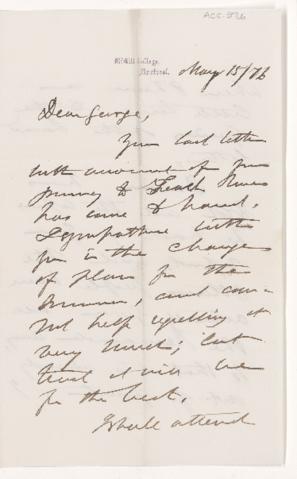 ACC-926
McGill College,
Montreal.
May 15/76
Dear George,
Your last letter
with account of your
journey to Peace River
has come to hand.
I sympathise with
you in the change
of plan for the
Summer, and can-
not help regretting it
very much; but
trust it will be
for the best.
I shall attend